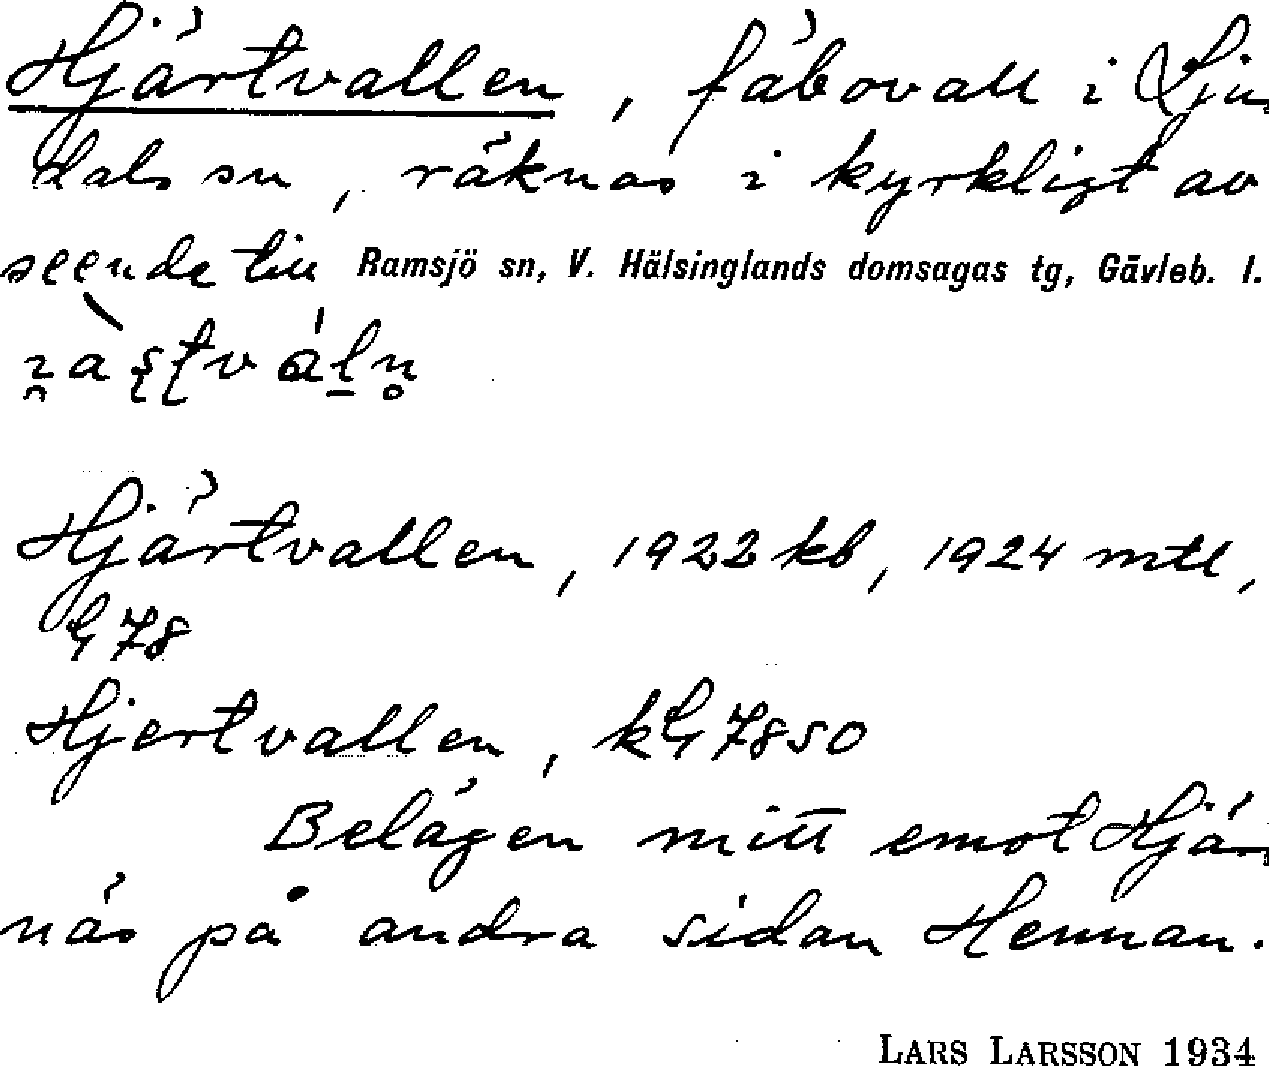 Hjärtvallen, fäbovall i Lju
dals sn, räknas i kyrkligt av
seende till Ramsjö sn, V. Hälsinglands domsagas tg, Gävleb. l.
Hjärtvallen, 1922 kb, 1924 mtl,
G 78
Hjertvallen, kG 7850
Belägen mitt emot Hjär
näs på andra sidan Hennan.
LARS LARSSON 1934